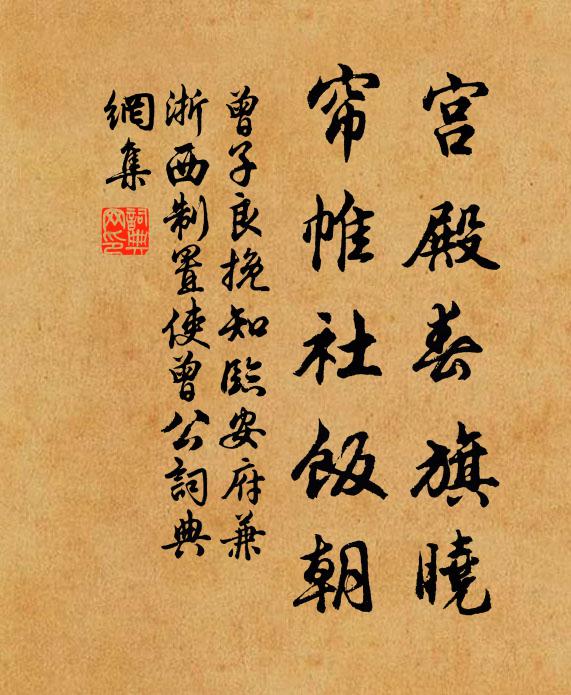 宫殿春旗曉
帘帷社飯朝
曾子良挽知臨安府兼
浙西制置使曾公詞典
網集
詞典網印